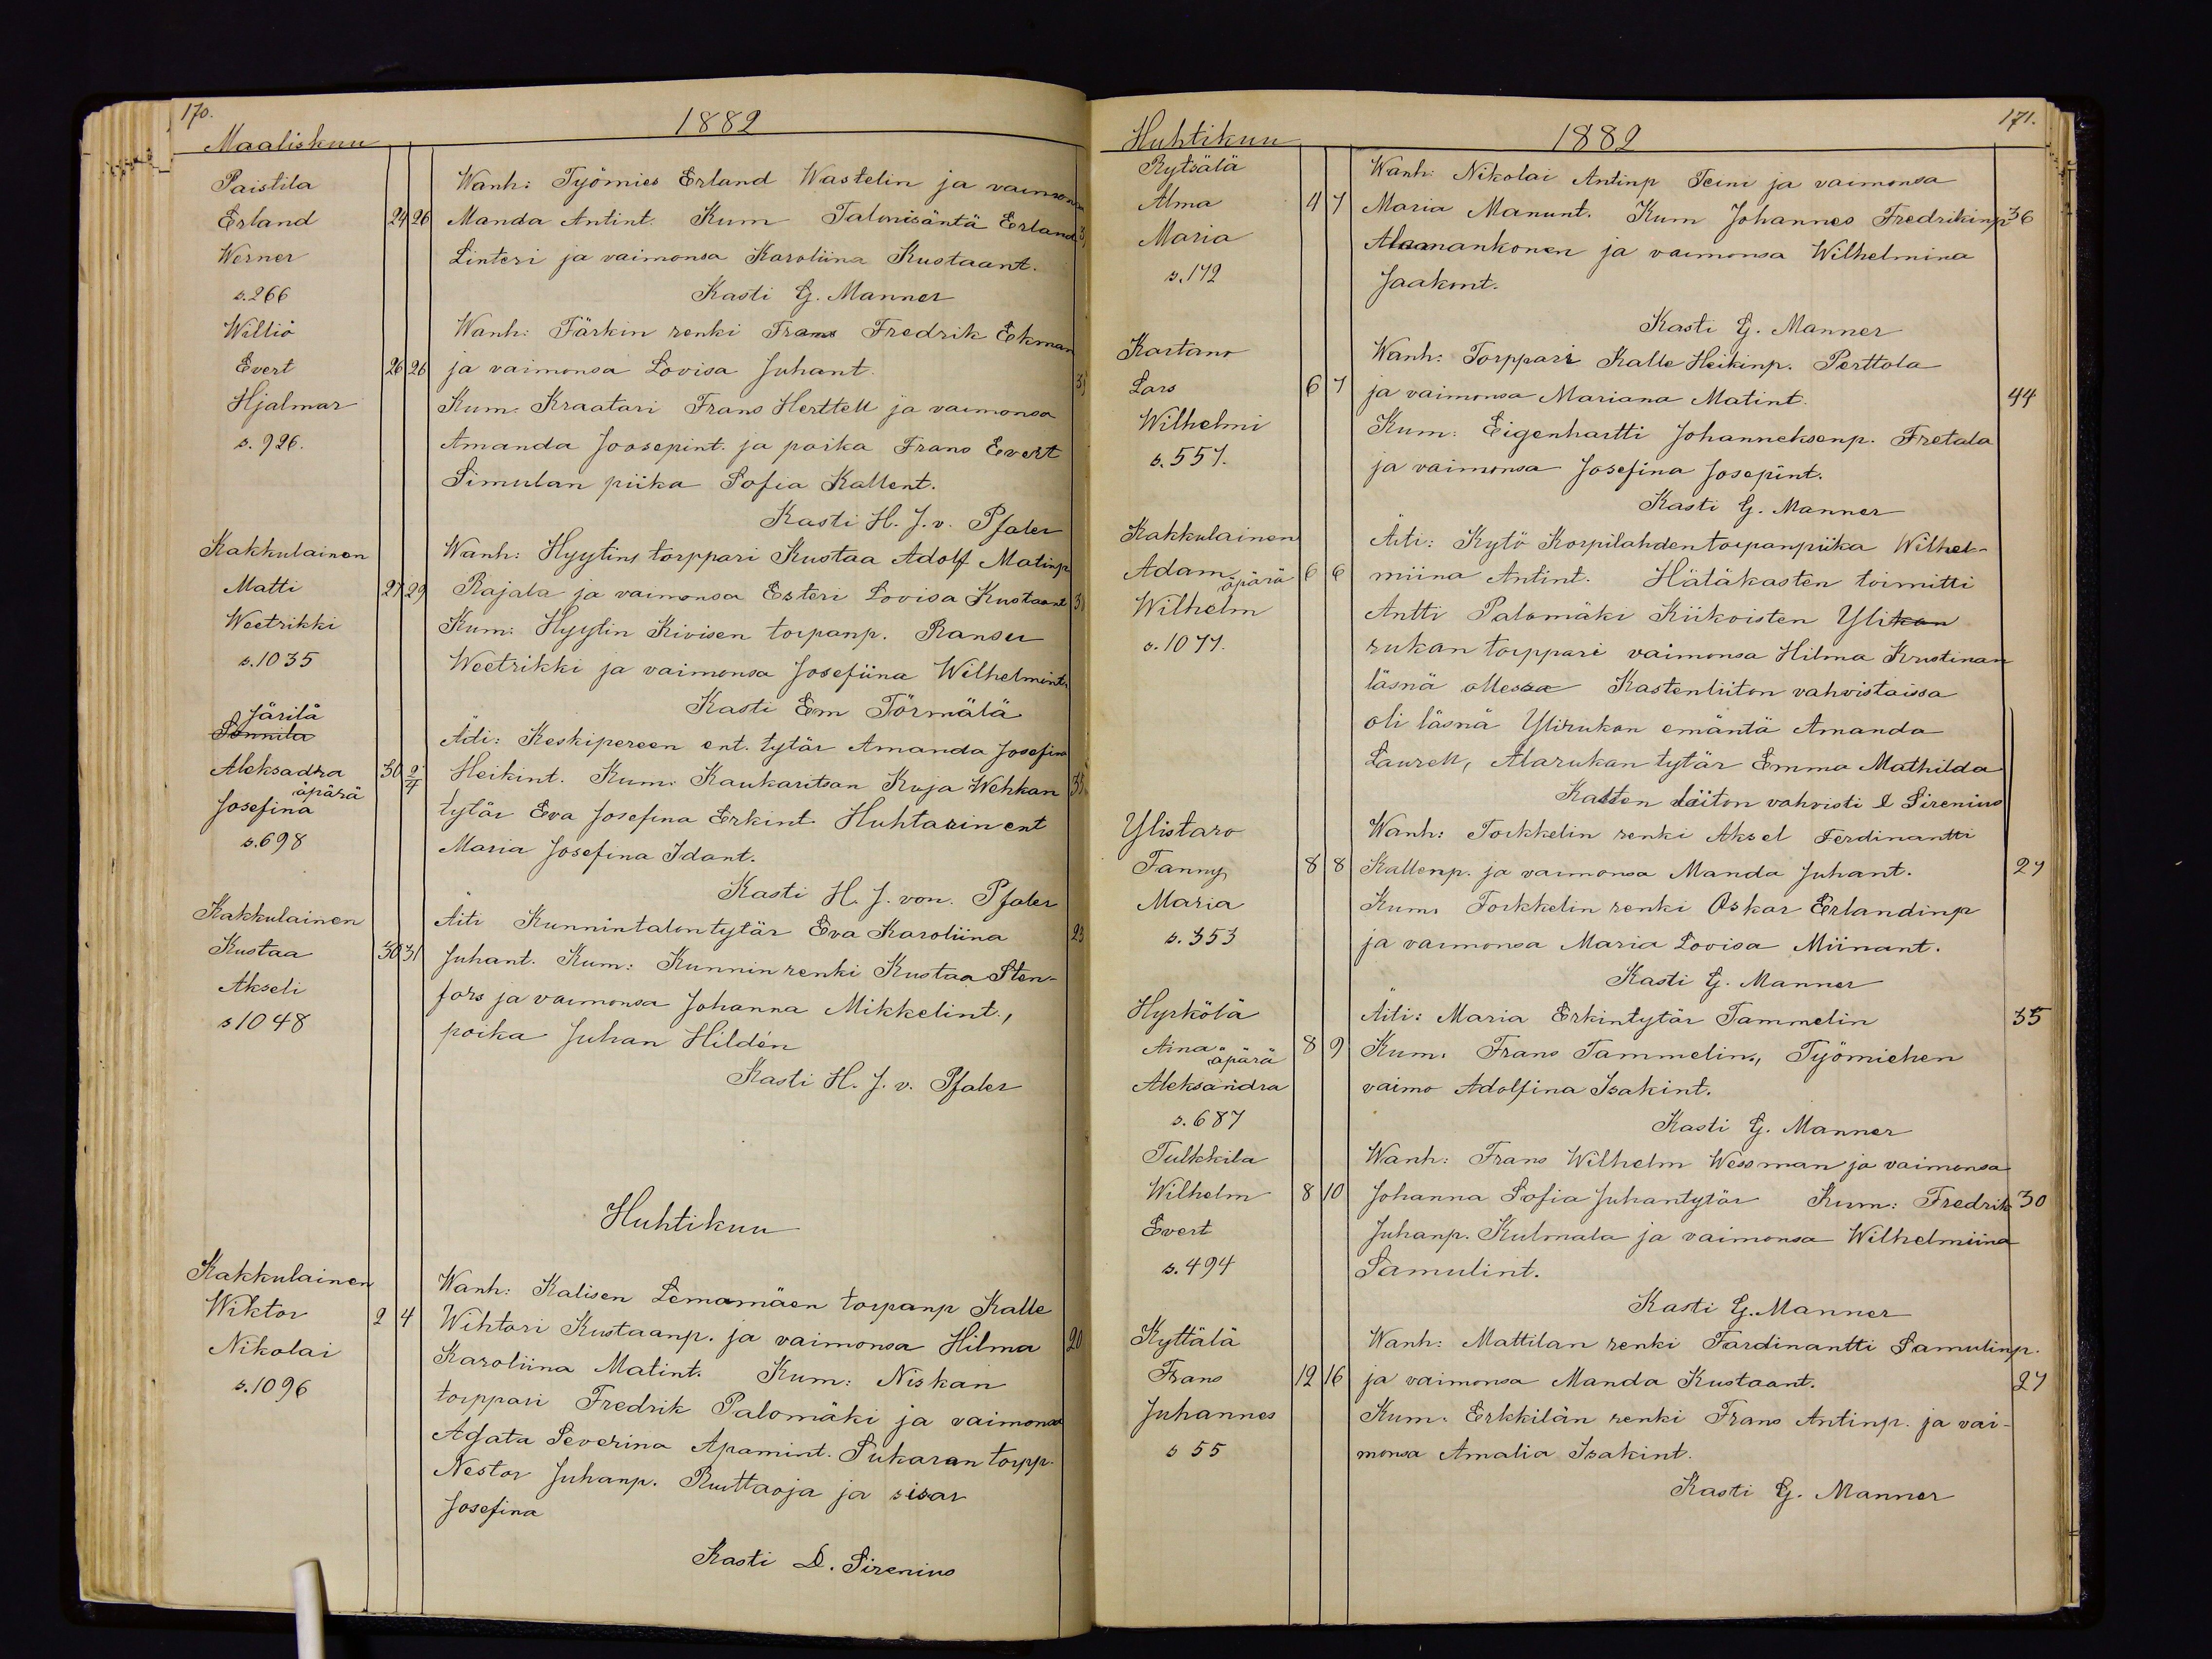 170.
1882
Maaliskuu
Paistila
Wanh: Työmies Erland Wastelin ja vaimonsa
Erland 24 26 Manda Antint. Kum Talonisäntä Erland
Werner Linteri ja vaimonsa Karoliina Kustaant.
s. 266 Kasti G. Manner
Williö Wanh: Färkin renki Frans Fredrik Ekman
Evert 26 26 ja vaimonsa Lovisa Juhant.
Hjalmar Kum. Kraatari Frans Herttell ja vaimonsa
s. 926. Amanda Joosepint. ja poika Frans Evert
Simulan piika Sofia Kallent.
Kasti H. J. v. Pfaler
Kakkulainen Wanh: Hyytins torppari Kustaa Adolf Matinp
Matti 27 29 Rajala ja vaimonsa Esteri Lovisa Kustaant
Weetrikki Kum: Hyytin Kivisen torpanp. Ransu
s. 1035 Weetrikki ja vaimonsa Josefiina Wilhelmint.
Kasti Em Törmälä
Järilä
Sonnila Äiti: Keskipereen ent. tytär Amanda Josefina
Aleksadra 30 2/4 Heikint. Kum: Kaukaritsan Kuja Wehkan
äpärä
Josefina tytär Eva Josefina Erkint. Huhtarin ent
s. 698 Maria Josefina Idant.
Kasti H. J. von. Pfaler
Kakkulainen Äiti Kunnintalon tytär Eva Karoliina 23
Kustaa 30 31 Juhant. Kum: Kunnin renki Kustaa Sten-
Akseli fors ja vaimonsa Johanna Mikkelint.,
s 1048 poika Juhan Hildén
Kasti H. J. v. Pfaler
Huhtikuu
Kakkulainen Wanh: Kalisen Lemamäen torpanp Kalle
Wiktor 2 4 Wihtori Kustaanp. ja vaimonsa Hilma 20
Nikolai Karoliina Matint. Kum: Niskan
s. 1096 torppari Fredrik Palomäki ja vaimonsa
Agata Severina Apamint. Sukaran torpp.
Nestor Juhanp. Ruttaoja ja sisar
Josefina
Kasti D. Sirenius
171.
Huhtikuu 1882
Rytsälä Wanh: Nikolai Antinp Teini ja vaimonsa
Alma 4 7 Maria Manunt. Kum Johannes Fredrikinp 36
Maria Alaanankonen ja vaimonsa Wilhelmina
s. 172 Jaakont.
Kasti G. Manner
Kartano Wanh: Torppari Kalle Heikinp. Perttola
Lars 6 7 ja vaimonsa Mariana Matint. 44
Wilhelmi Kum: Eigenhartti Johanneksenp. Fretala
s. 557. ja vaimonsa Josefina Josepint.
Kasti G. Manner
Kakkulainen Äiti: Kytö Korpilahden torpanpiika Wilhel-
Adam 6 6 miina Antint. Hätäkasten toimitti
äpärä
Wilhelm Antti Palomäki Kiikoisten Ylikan
s. 1077. rukan torppari vaimonsa Hilma Kristinan
läsnä ollessa Kastenliiton vahvistaissa
oli läsnä Ylirukan emäntä Amanda
Laurell, Alarukan tytär Emma Mathilda
Kasten liiton vahvisti D Sirenius
Ylistaro Wanh: Torkkelin renki Aksel Ferdinantti
Fanny 8 8 Kallenp. ja vaimonsa Manda Juhant. 27
Maria Kum. Torkkelin renki Oskar Erlandinp
s. 353 ja vaimonsa Maria Lovisa Miinant.
Kasti G. Manner
Hyrkölä Äiti: Maria Erkintytär Tammelin 35
Aina 8 9 Kum. Frans Tammelin., Työmiehen
äpärä
Aleksandra vaimo Adolfina Isakint.
s. 687 Kasti G. Manner
Tulkkila Wanh: Frans Wilhelm Wessman ja vaimonsa
Wilhelm 8 10 Johanna Sofia Juhantytär Kum: Fredrik 30
Evert Juhanp. Kulmala ja vaimonsa Wilhelmiina
s. 494 Samulint.
Kasti G. Manner
Kyttälä Wanh: Mattilan renki Fardinantti Samulinp.
Frans 12 16 ja vaimonsa Manda Kustaant. 27
Juhannes Kum. Erkkilän renki Frans Antinp. ja vai-
s 55 monsa Amalia Isakint.
Kasti G. Manner